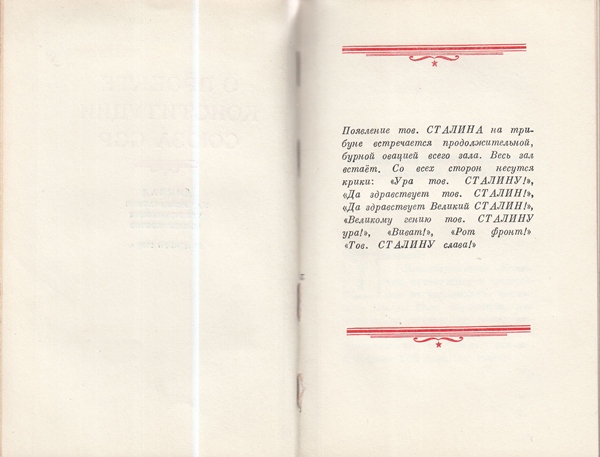 Появление тов. СТАЛИНА на три-
буне встречается продолжительной,
бурной овацией всего зала. Весь зал
встаёт. Со всех сторон несутся
крики: «Ура тов. СТАЛИНУ!»,
«Да здравствует тов. СТАЛИН!»,
«Да здравствует Великий СТАЛИН!»,
«Великому гению тов. СТАЛИНУ
ура!», «Виват!», «Рот фронт!»
«Тов. СТАЛИНУ слава!»